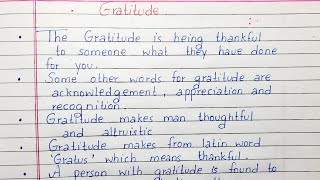 Gratitude
• The Gratitude is being thankful
to someone what they have done
for you.
• Some other words for gratitude are
acknowledgement, appreciation and
recognition.
• Gratitude makes man thoughtful
and altruistic
• Gratitude makes from latin word
'Gratus' which means thankful.
• A person with gratitude is found to